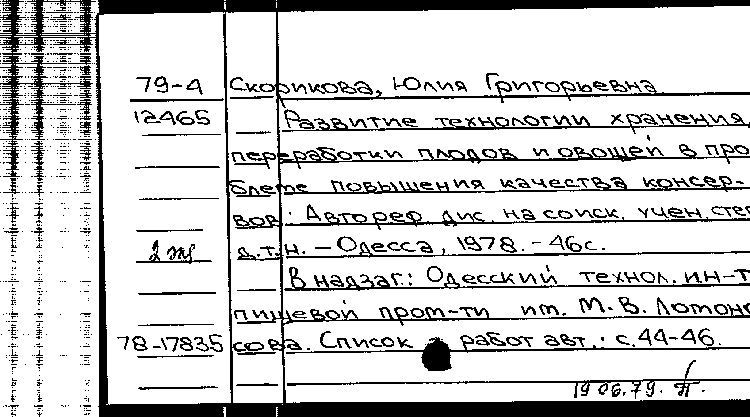 79-4 Скорикова, Юлия Григорьевна
12465 Развитие технологии хранения,
переработки плодов и овощей в про
блеме повышения качества консер-
вов: Автореф. дис. на соиск. учен. степ
2 экз д.т.н. – Одесса, 1978. – 46с.
В надзаг.: Одесский технол. ин-т
пищевой пром-ти им. М.В. Ломоно
78-17835 сова. Список работ авт.: с.44-46.
19.06.79.